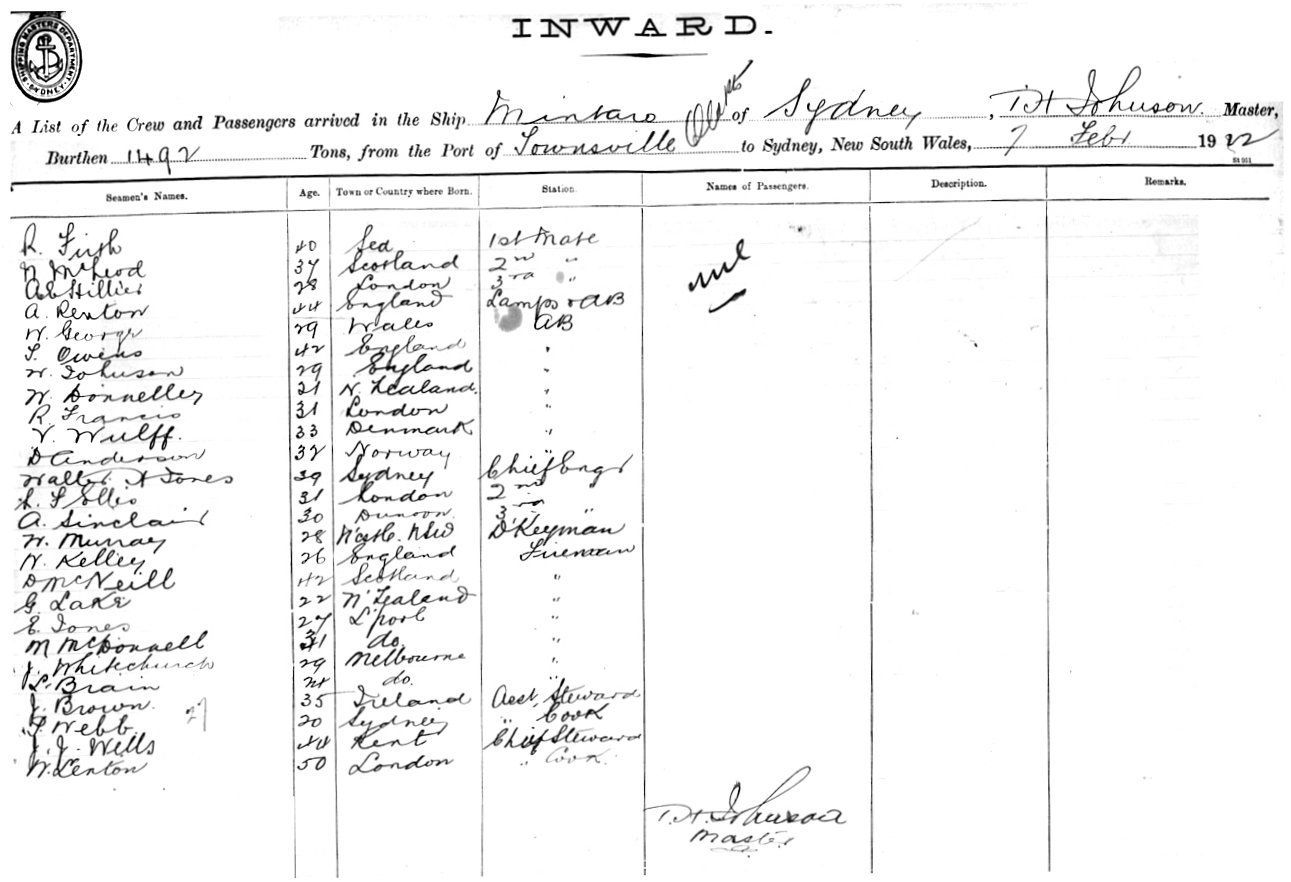 SHIPPING MASTERS DEPARTMENT. SYDNEY.
INWARD.
A List of the Crew and Passengers arrived in the Ship Mintaro of Sydney, T.H. Johnson. Master,
Burthen 1492 Tons, from the Port of Townsville to Sydney, New South Wales, 7 Febr 1922
Seamen's Names. Age. Town or Country where Born. Station. Names of Passengers. Description. Remarks.
R. Firth 40 1st Mate
N McLeod 37 Scotland 2nd " nil
A E Hillier 28 London 3rd "
A. Renton 44 England Lamps & AB
W. George 29 Wales AB
Owens 42 England "
W. Johnson 29 England "
W. Donnelley 21 N. Zealand. "
R Francis 31 London "
V. Wulff. 33 Denmark "
D Anderson 32 Norway "
Walter H Jones 39 Sydney Chief Engr
F Ellis 31 London 2nd "
A. Sinclair 30 Dunoon 3rd "
W. Murray 28 NSW D'Keyman
W. Kelley 26 England Fireman
D McNeill 42 Scotland "
G. Lake 22 N' Zealand "
E. Jones 27 L'pool "
M McDonnell do. "
J. Whitechurch 29 Melbourne "
Brain do. "
J. Brown. 35 Ireland Asst, Steward
Webb 20 Sydney " Cook
J. J. Wells 44 Kent Chief Steward
W. Lenton 50 London " Cook
27
T.H. Johnson
Master